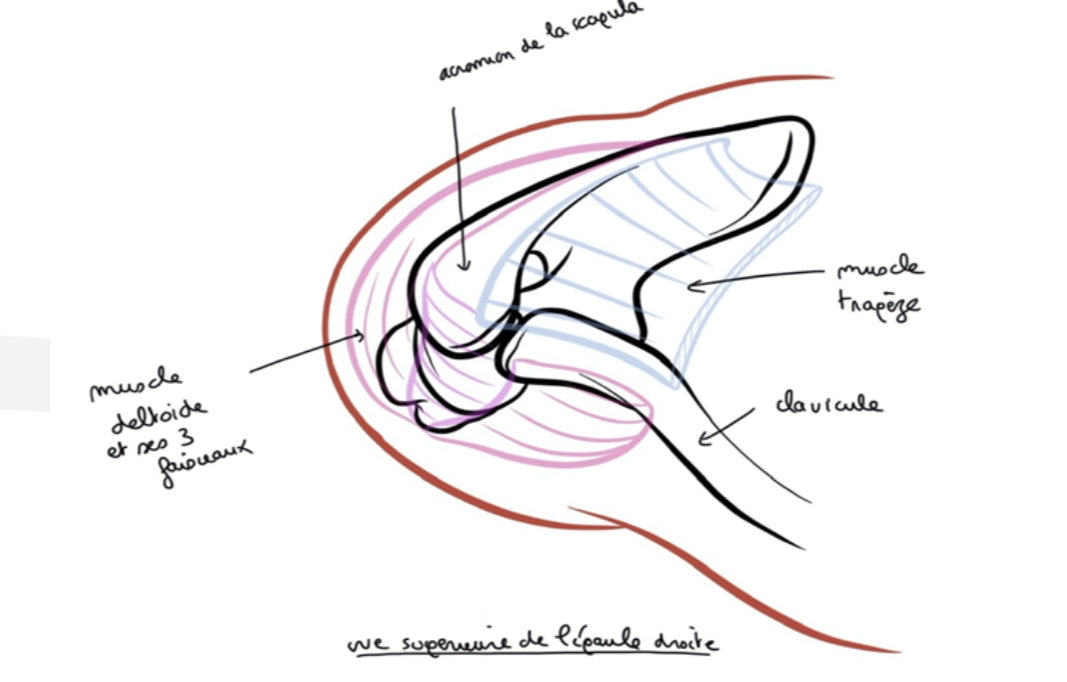 acromion de la scapula
muscle
trapèze
clavicule
muscle
deltoïde
et ses 3
faisceaux
vue superieure de l'épaule droite